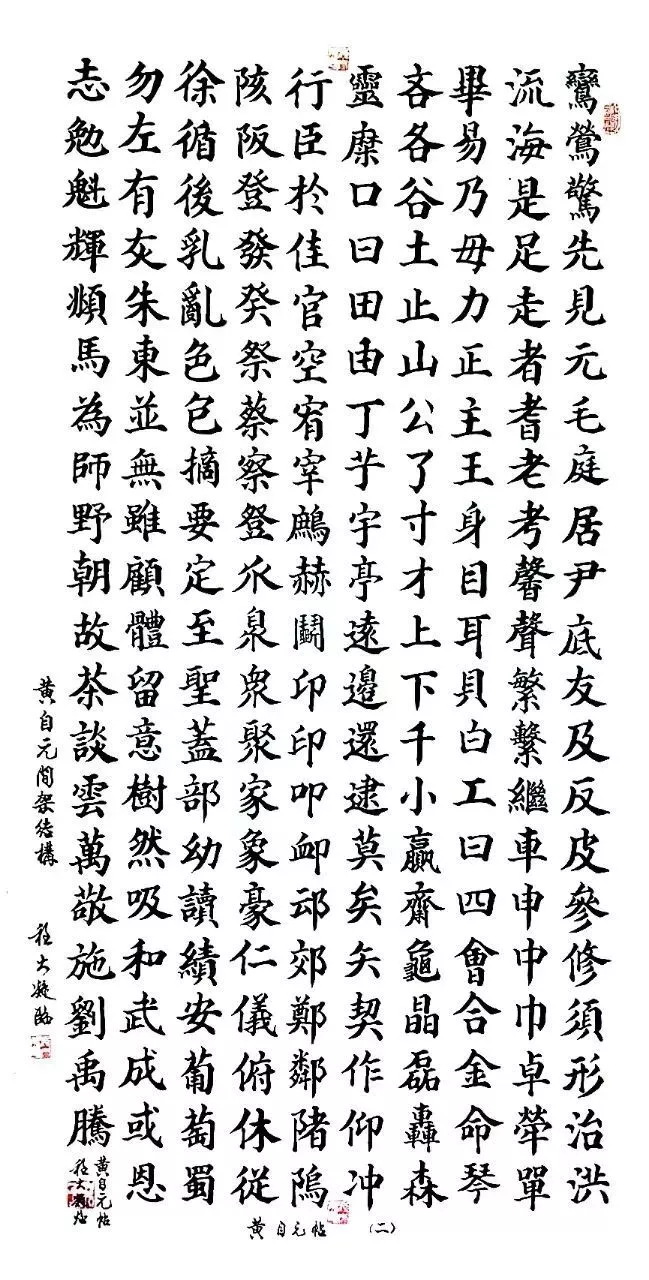 鸞鶯驚先見元毛庭居尹底友及反皮參修須形治洪
流海是足走者耆老考馨聲繁繫繼車申中巾卓犖單
畢易乃毋力正主王身目耳貝白工曰四會合金命琴
吝各谷土止山公了寸才上下千小贏齋龜晶磊轟森
靈糜口曰田由丁于宇亭遠邊還逮莫矣矢契作仰冲
行臣於佳官空宥宰鷓赫鬭卬印叩卹邙郊鄭鄰陼隝
陔阪登發癸祭蔡察登爪泉衆聚家象豪仁儀俯休従
徐循後乳亂色包摘要定至聖蓋部幼讀績安葡萄蜀
勿左有灰朱東並無雖顧體留意樹然吸和武成或恩
志勉魁輝頫馬為師野朝故茶談雲萬敬施劉禹騰
黄自元帖
黄自元間架結構
程大凝臨
黄自元帖 (二)